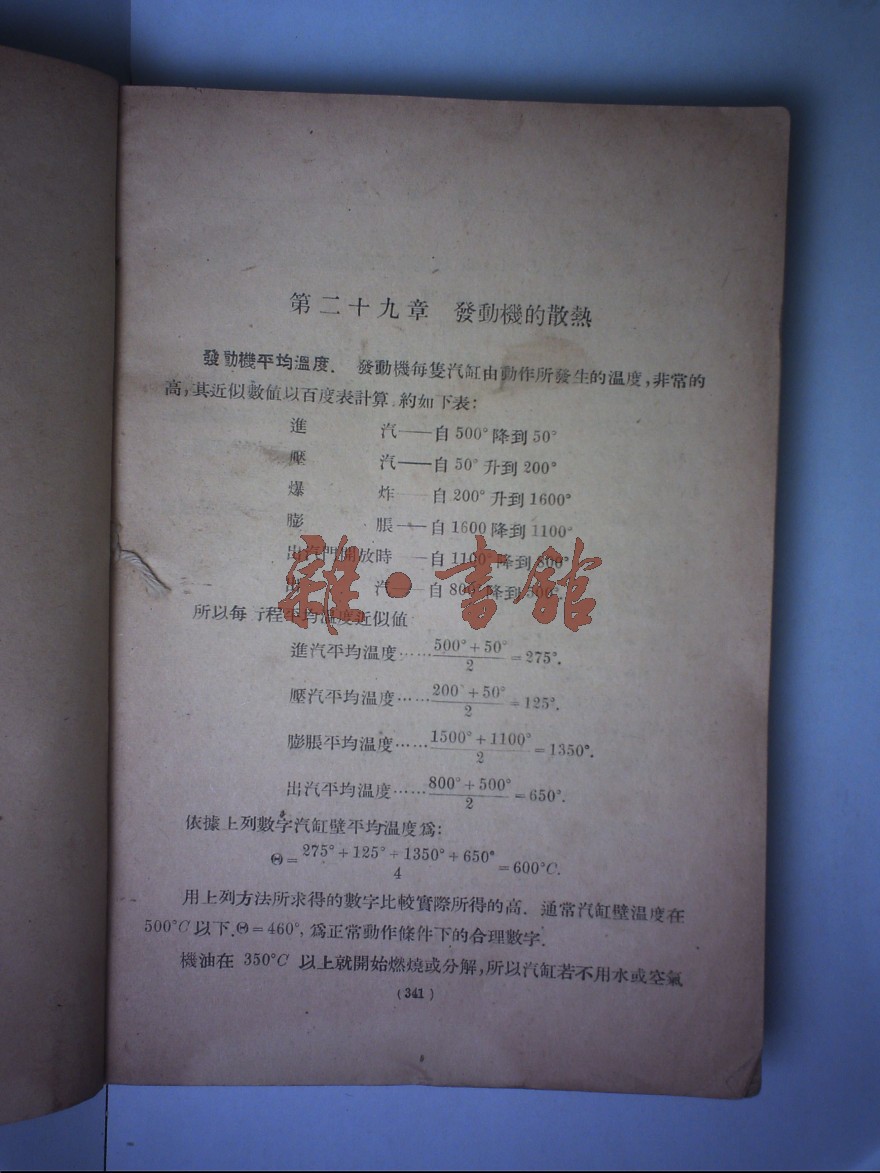 第二十九章 發動機的散熱
發動機平均溫度. 發動機每隻汽缸由動作所發生的溫度,非常的
高,其近似數値以百度表計算,約如下表:
進 汽——自 500° 降到 50°
壓 汽——自 50° 升到 200°
爆 炸——自 200° 升到 1600°
膨 脹——自 1600 降到 1100°
出汽門開放時——自 1100° 降到 800°
出 汽——自 800° 降到 500°.
所以每行程平均溫度近似值
進汽平均溫度……(500°+50°)/2=275°.
壓汽平均溫度……(200°+50°)/2=125°.
膨脹平均溫度……(1500°+1100°)/2=1350°.
出汽平均溫度……(800°+500°)/2=650°.
依據上列數字汽缸壁平均溫度爲:
Θ=(275°+125°+1350°+650°)/4=600°C.
用上列方法所求得的數字比較實際所得的高. 通常汽缸壁溫度在
500°C以下.Θ=460°, 爲正常動作條件下的合理數字.
機油在 350°C 以上就開始燃燒或分解,所以汽缸若不用水或空氣
(341)
雜·書館